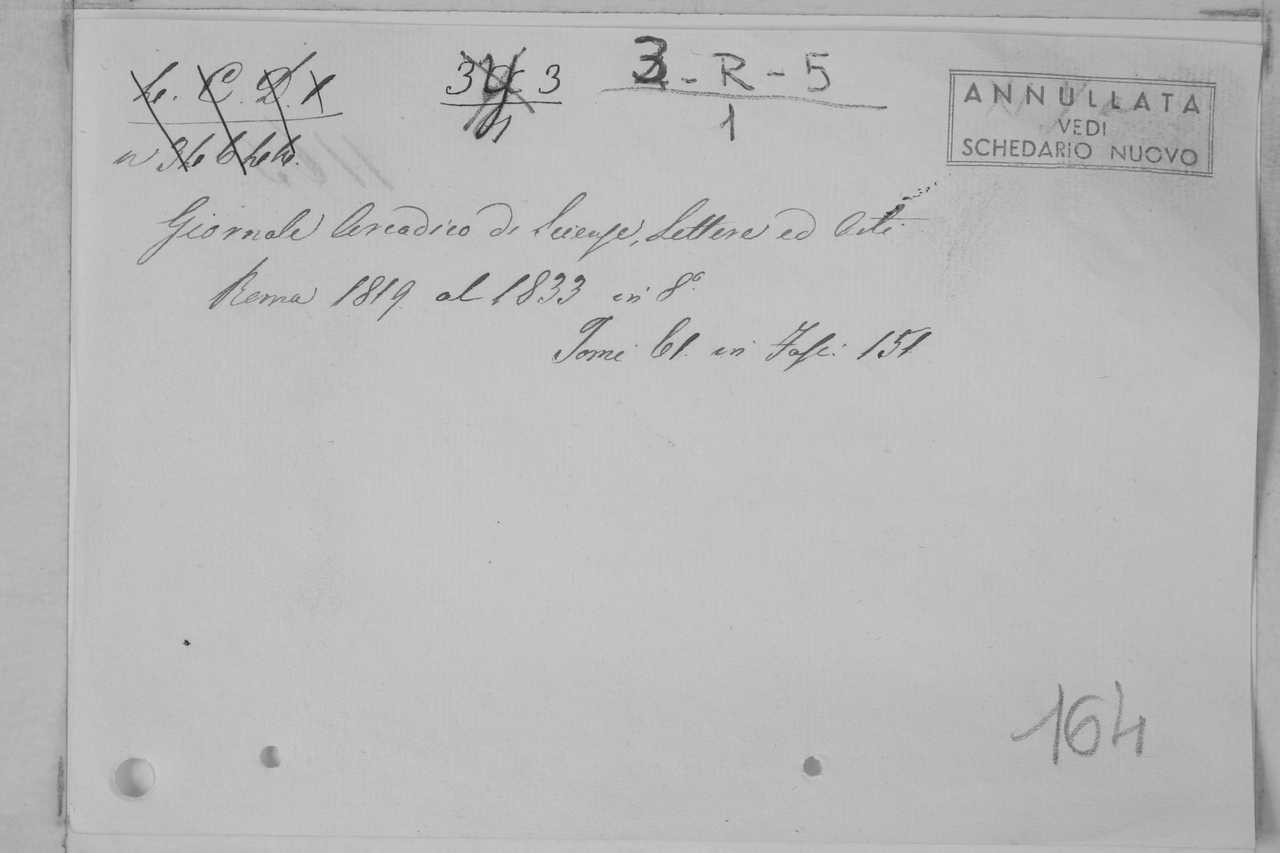 3-R-5
1
ANNULLATA
VEDI
SCHEDARIO NUOVO
Giornale Arcadico di Scienze, Lettere ed Arti.
Roma 1819. al 1833 in 8.º
Tomi 61. in Fasc: 151
164